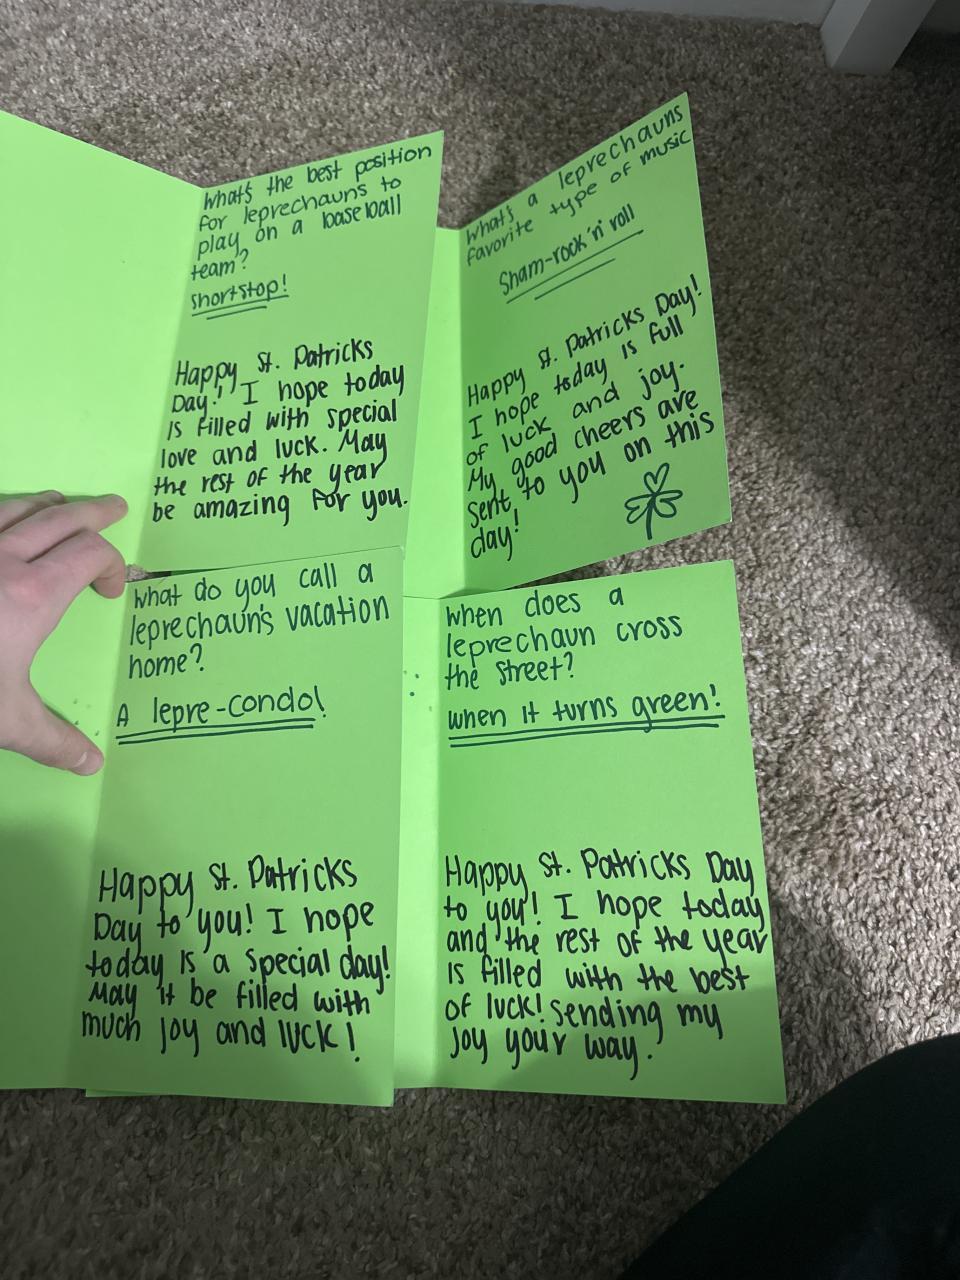 What's the best position
for leprechauns to
play on a baseball
team?
shortstop!
Happy St. Patricks
Day! I hope today
is filled with special
love and luck. May
the rest of the year
be amazing for you.
What's a leprechauns
favorite type of music
Sham-rock 'n' roll
Happy St. Patricks Day!
I hope today is full
of luck and joy.
My good cheers are
sent to you on this
day!
What do you call a
leprechaun's vacation
home?
A lepre-condo!
Happy St. Patricks
Day to you! I hope
today is a special day!
May it be filled with
much joy and luck!
When does a
leprechaun cross
the street?
When it turns green!
Happy St. Patricks Day
to you! I hope today
and the rest of the year
is filled with the best
of luck! Sending my
joy your way.